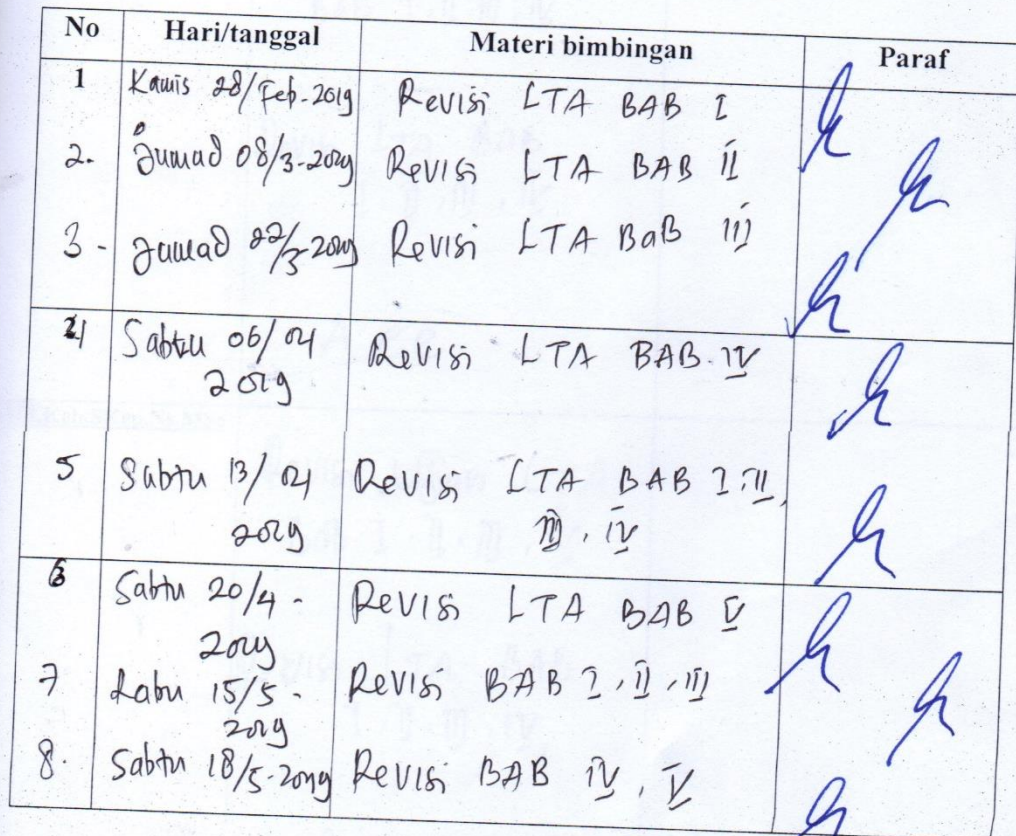 No Hari/tanggal Materi bimbingan Paraf
1 Kamis 28/Feb-2019 Revisi LTA BAB I
2. Jumad 08/3-2019 Revisi LTA BAB II
3 - Jumad 22/3-2019 Revisi LTA BaB III
4 Sabtu 06/04 Revisi LTA BAB IV
2019
5 Sabtu 13/04 Revisi LTA BAB I II,
2019 III, IV
6 Sabtu 20/4 - Revisi LTA BAB V
2019
7 Rabu 15/5 - Revisi BAB I, II, III
2019
8. Sabtu 18/5-2019 Revisi BAB IV, V